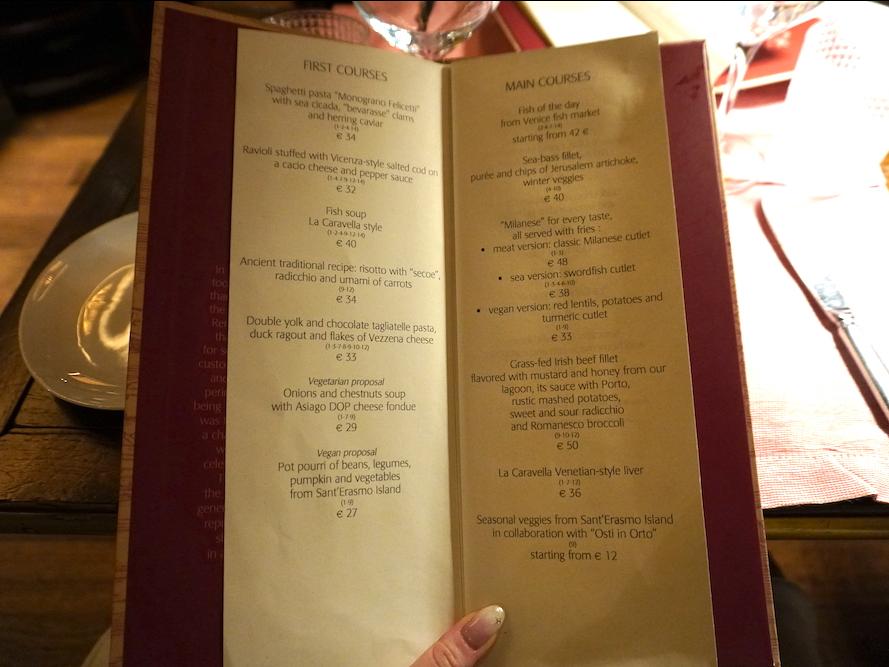 FIRST COURSES
Spaghetti pasta "Monograno Felicetti"
with sea cicada, "bevarasse" clams
and herring caviar
(1-2-4-14)
€ 34
Ravioli stuffed with Vicenza-style salted cod on
a cacio cheese and pepper sauce
(1-4-7-9-12-14)
€ 32
Fish soup
La Caravella style
(1-2-4-9-12-14)
€ 40
Ancient traditional recipe: risotto with "secoe",
radicchio and umami of carrots
(9-12)
€ 34
Double yolk and chocolate tagliatelle pasta,
duck ragout and flakes of Vezzena cheese
(1-3-7-8-9-10-12)
€ 33
Vegetarian proposal
Onions and chestnuts soup
with Asiago DOP cheese fondue
(1-7-9)
€ 29
Vegan proposal
Pot pourri of beans, legumes,
pumpkin and vegetables
from Sant'Erasmo Island
(1-9)
€ 27
MAIN COURSES
Fish of the day
from Venice fish market
starting from 42 €
Sea-bass fillet,
purée and chips of Jerusalem artichoke,
winter veggies
(4-10)
€ 40
"Milanese" for every taste,
all served with fries :
• meat version: classic Milanese cutlet
(1-3)
€ 48
• sea version: swordfish cutlet
(1-3-4-6-10)
€ 38
• vegan version: red lentils, potatoes and
turmeric cutlet
(1-9)
€ 33
Grass-fed Irish beef fillet
flavored with mustard and honey from our
lagoon, its sauce with Porto,
rustic mashed potatoes,
sweet and sour radicchio
and Romanesco broccoli
(9-10-12)
€ 50
La Caravella Venetian-style liver
(1-7-12)
€ 36
Seasonal veggies from Sant'Erasmo Island
in collaboration with "Osti in Orto"
(9)
starting from € 12